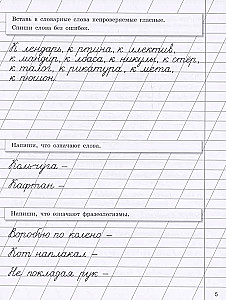 Вставь в словарные слова непроверяемые гласные.
Спиши слова без ошибок.
К лендарь, к ртина, к лектив,
к мандир, к лбаса, к никулы, к стёр,
к талог, к рикатура, к мета,
к пюшон.
Напиши, что означают слова.
Кольчуга –
Кафтан –
Напиши, что означают фразеологизмы.
Воробью по колено –
Кот наплакал –
Не покладая рук –
5